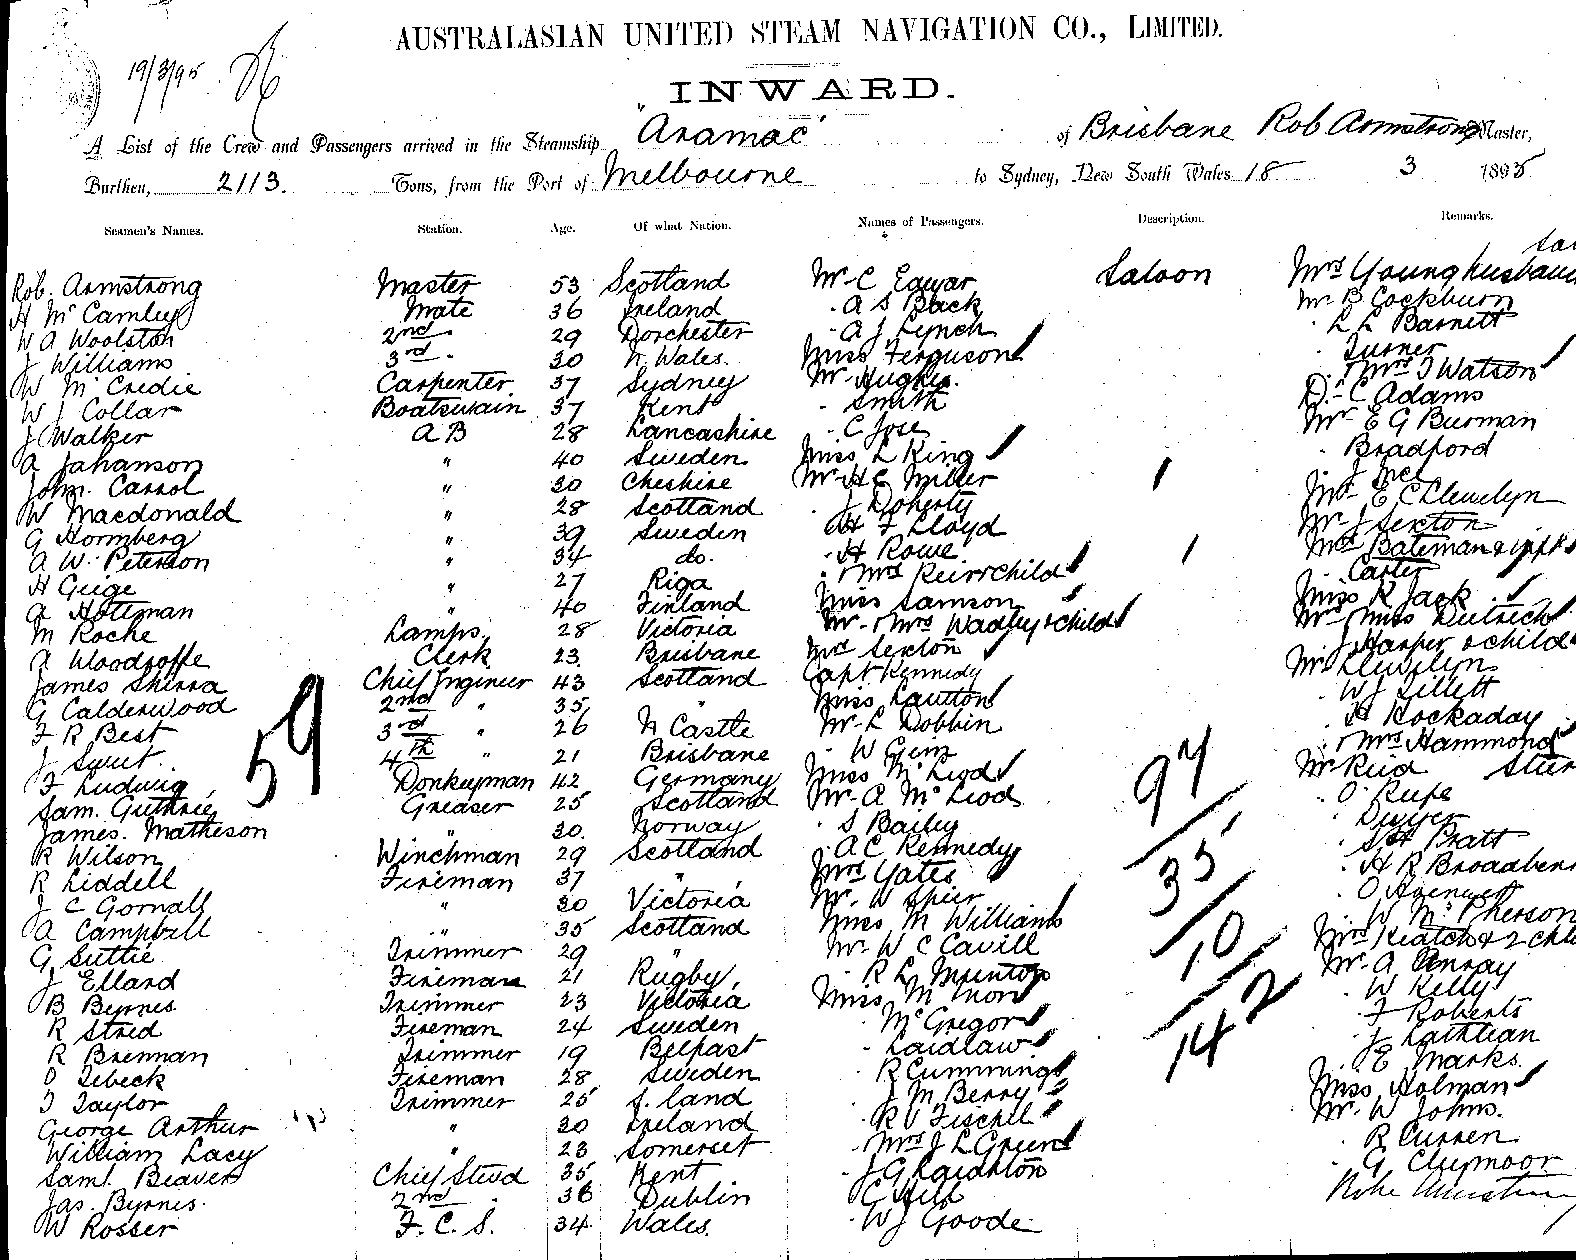 AUSTRALASIAN UNITED STEAM NAVIGATION CO., LIMITED.
19/3/95
INWARD.
A List of the Crew and Passengers arrived in the Steamship "Aramac" of Brisbane Rob Armstrong Master,
Burthen, 2113. Tons, from the Port of Melbourne to Sydney, New South Wales 18 3 1895
Seamen's Names. Station. Age. Of what Nation. Names of Passengers. Description. Remarks.
Rob. Armstrong Master 53 Scotland Mr C Saloon Mrs Younghusband
H McCamley Mate 36 Ireland A S Black Mr B Cockburn
W A Woolston 2nd 29 Dorchester A J Lynch L L Barnett
J Williams 3rd 30 N. Wales. Miss Ferguson Turner
W McCredie Carpenter 37 Sydney Mr Hughes. Mrs T Watson
W J Collar Boatswain 37 Kent Smith D. C Adams
J Walker A B 28 Lancashire C Jose Mr E G Burman
A Johanson " 40 Sweden Miss L King Bradford
John. Carrol " 30 Cheshire Mr H E Miller
W Macdonald " 28 Scotland J Doherty E C Llewelyn
G Hormberg " 39 Sweden H F Lloyd Mr J Sexton
A W. Peterson " 34 do. H Rowe Mrs Bateman & inft
H Geige " 27 Riga Mrs Carter
A Holtman " 40 Finland Miss Samson Miss R Jack
M Roche Lamps. 28 Victoria Mr & Mrs Wadley & child Mrs Miss Dietrich
A Woodroffe Clerk 23 Brisbane Mrs Sexton J Harper & child
James Shirra Chief Engineer 43 Scotland Capt Kennedy Mr Llewelyn
G Calderwood 2nd " 35 " Miss Lawton W J Sillett
F R Best 3rd " 26 N Castle Mr L Dobbin H Hockaday
J Swet. 4th " 21 Brisbane W Mrs Hammond
F Ludwig Donkeyman 42 Germany Miss McLeod Mr Reid
Sam. Guthrie Greaser 25 Scotland Mr A McLeod O. Rupe
James. Matheson " 30. Norway S Bailey Dwyer
R Wilson Winchman 29 Scotland A C Kennedy S H Pratt
R Liddell Fireman 37 " Mrs Yates H R Broadben
J C Gornall " 30 Victoria Mr. W Spier O
A Campbell " 35 Scotland Miss M Williams W McPherson
G Suttie Trimmer 29 " Mr W C Cavill Mrs & 2 chld
J Elland Fireman 21 Rugby, R L Mr A
B Byrnes Trimmer 23 Victoria Miss M W Kelly
R Strid Fireman 24 Sweden McGregor F Roberts
R Brennan Trimmer 19 Belfast Laidlaw J
O Tebeck Fireman 28 Sweden R Cummings E Marks.
T Taylor Trimmer 25 land J M Berry Miss Holman
George Arthur " 20 Ireland R V Mr. W Johns.
William Lacy " 23 Somerset Mrs J L Green R Curren
Saml. Beaver Chief Stewd 35 Kent J G Laighton G
Jas. Byrnes. 2nd " 36 Dublin C Hill
W Rosser F. C. S. 34 Wales. W J Goode
59
97
35
10
142